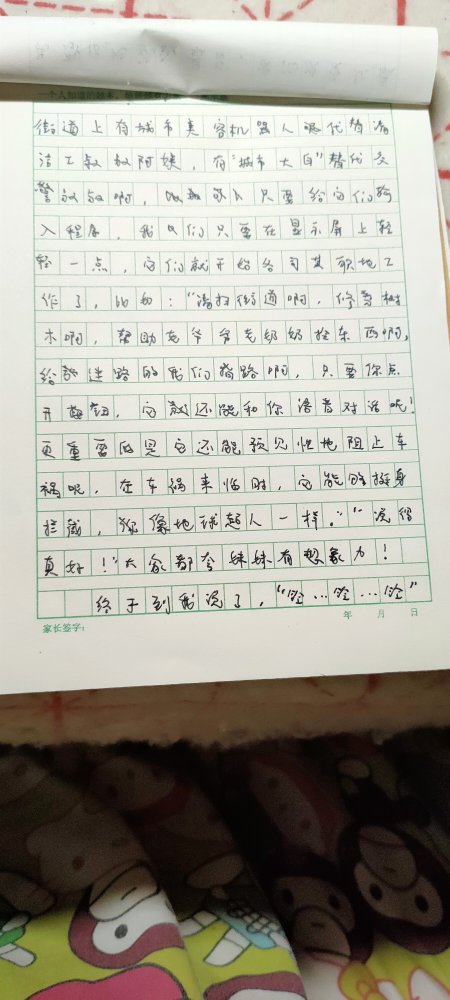 街道上有城市美容机器人取代替清
洁工叔叔阿姨，有“城市大白”替代交
警叔叔啊，只要给它们输
入程序，我们只要在显示屏上轻
轻一点，它们就开始各司其职地工
作了，比如：“清扫街道啊，修剪树
木啊，帮助老爷爷老奶奶拴东西啊，
给迷路的我们指路啊，只要你点
开按钮，它就还能和你语音对话呢！
更重要的是它还能预见性地阻止车
祸呢，在车祸来临时，它能挺身
拦截，犹像地球超人一样。”“说得
真好！”大家都夸妹妹有想象力！
终于到我说了，“铃…铃…铃”
家长签字： 年 月 日